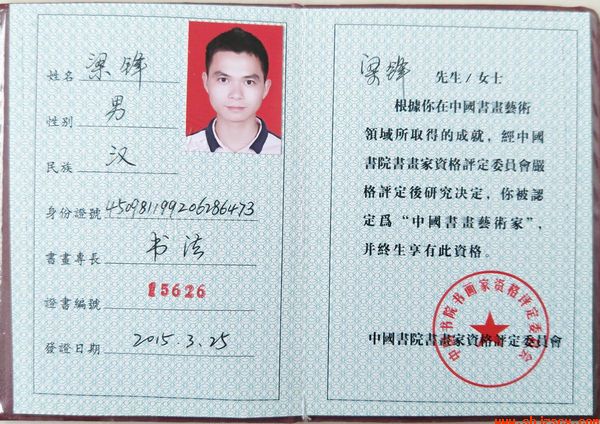 姓名 梁锋
性别 男
民族 汉
身份證號 450981199206286473
書畫專長 书法
證書編號 15626
發證日期 2015.3.25
梁锋 先生/女士
根據你在中國書畫藝術
領域所取得的成就，經中國
書院書畫家資格評定委員會嚴
格評定後研究決定，你被認
定爲“中國書畫藝術家”，
并終生享有此資格。
中国书院书画家资格评定委员会
中國書院書畫家資格評定委員會